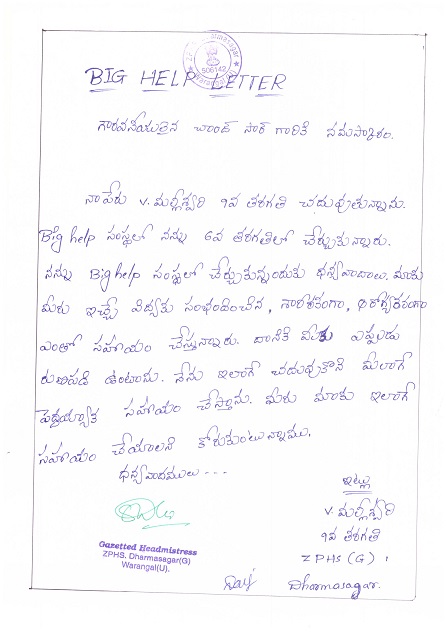 Z.P. Dharmasagar
506142
Warangal(U)
BIG HELP LETTER
గౌరవనీయులైన చాంద్ సార్ గారికి నమస్కారం.
నా పేరు v. మల్లీశ్వరి 9వ తరగతి చదువుతున్నాను.
Big help సంస్థలో నన్ను 6వ తరగతిలో చేర్చుకున్నారు.
నన్ను Big help సంస్థలో చేర్చుకున్నందుకు ధన్యవాదాలు. మాకు
మీరు ఇచ్చే విద్యకు సంభందించిన, శారీరకంగా, ఆరోగ్యకరంగా
ఎంతో సహాయం చేస్తున్నారు. దానికి మీకు ఎప్పుడు
రుణపడి ఉంటాను. నేను ఇలాగే చదువుకొని మీలాగే
పెద్దయ్యాక సహాయం చేస్తాను. మీరు మాకు ఇలాగే
సహాయం చేయాలని కోరుకుంటున్నాము.
ధన్యవాదములు ---
ఇట్లు
v. మల్లీశ్వరి
9వ తరగతి
ZPHS (G)
Dharmasagar.
Gazetted Headmistress
ZPHS. Dharmasagar(G)
Warangal(U).